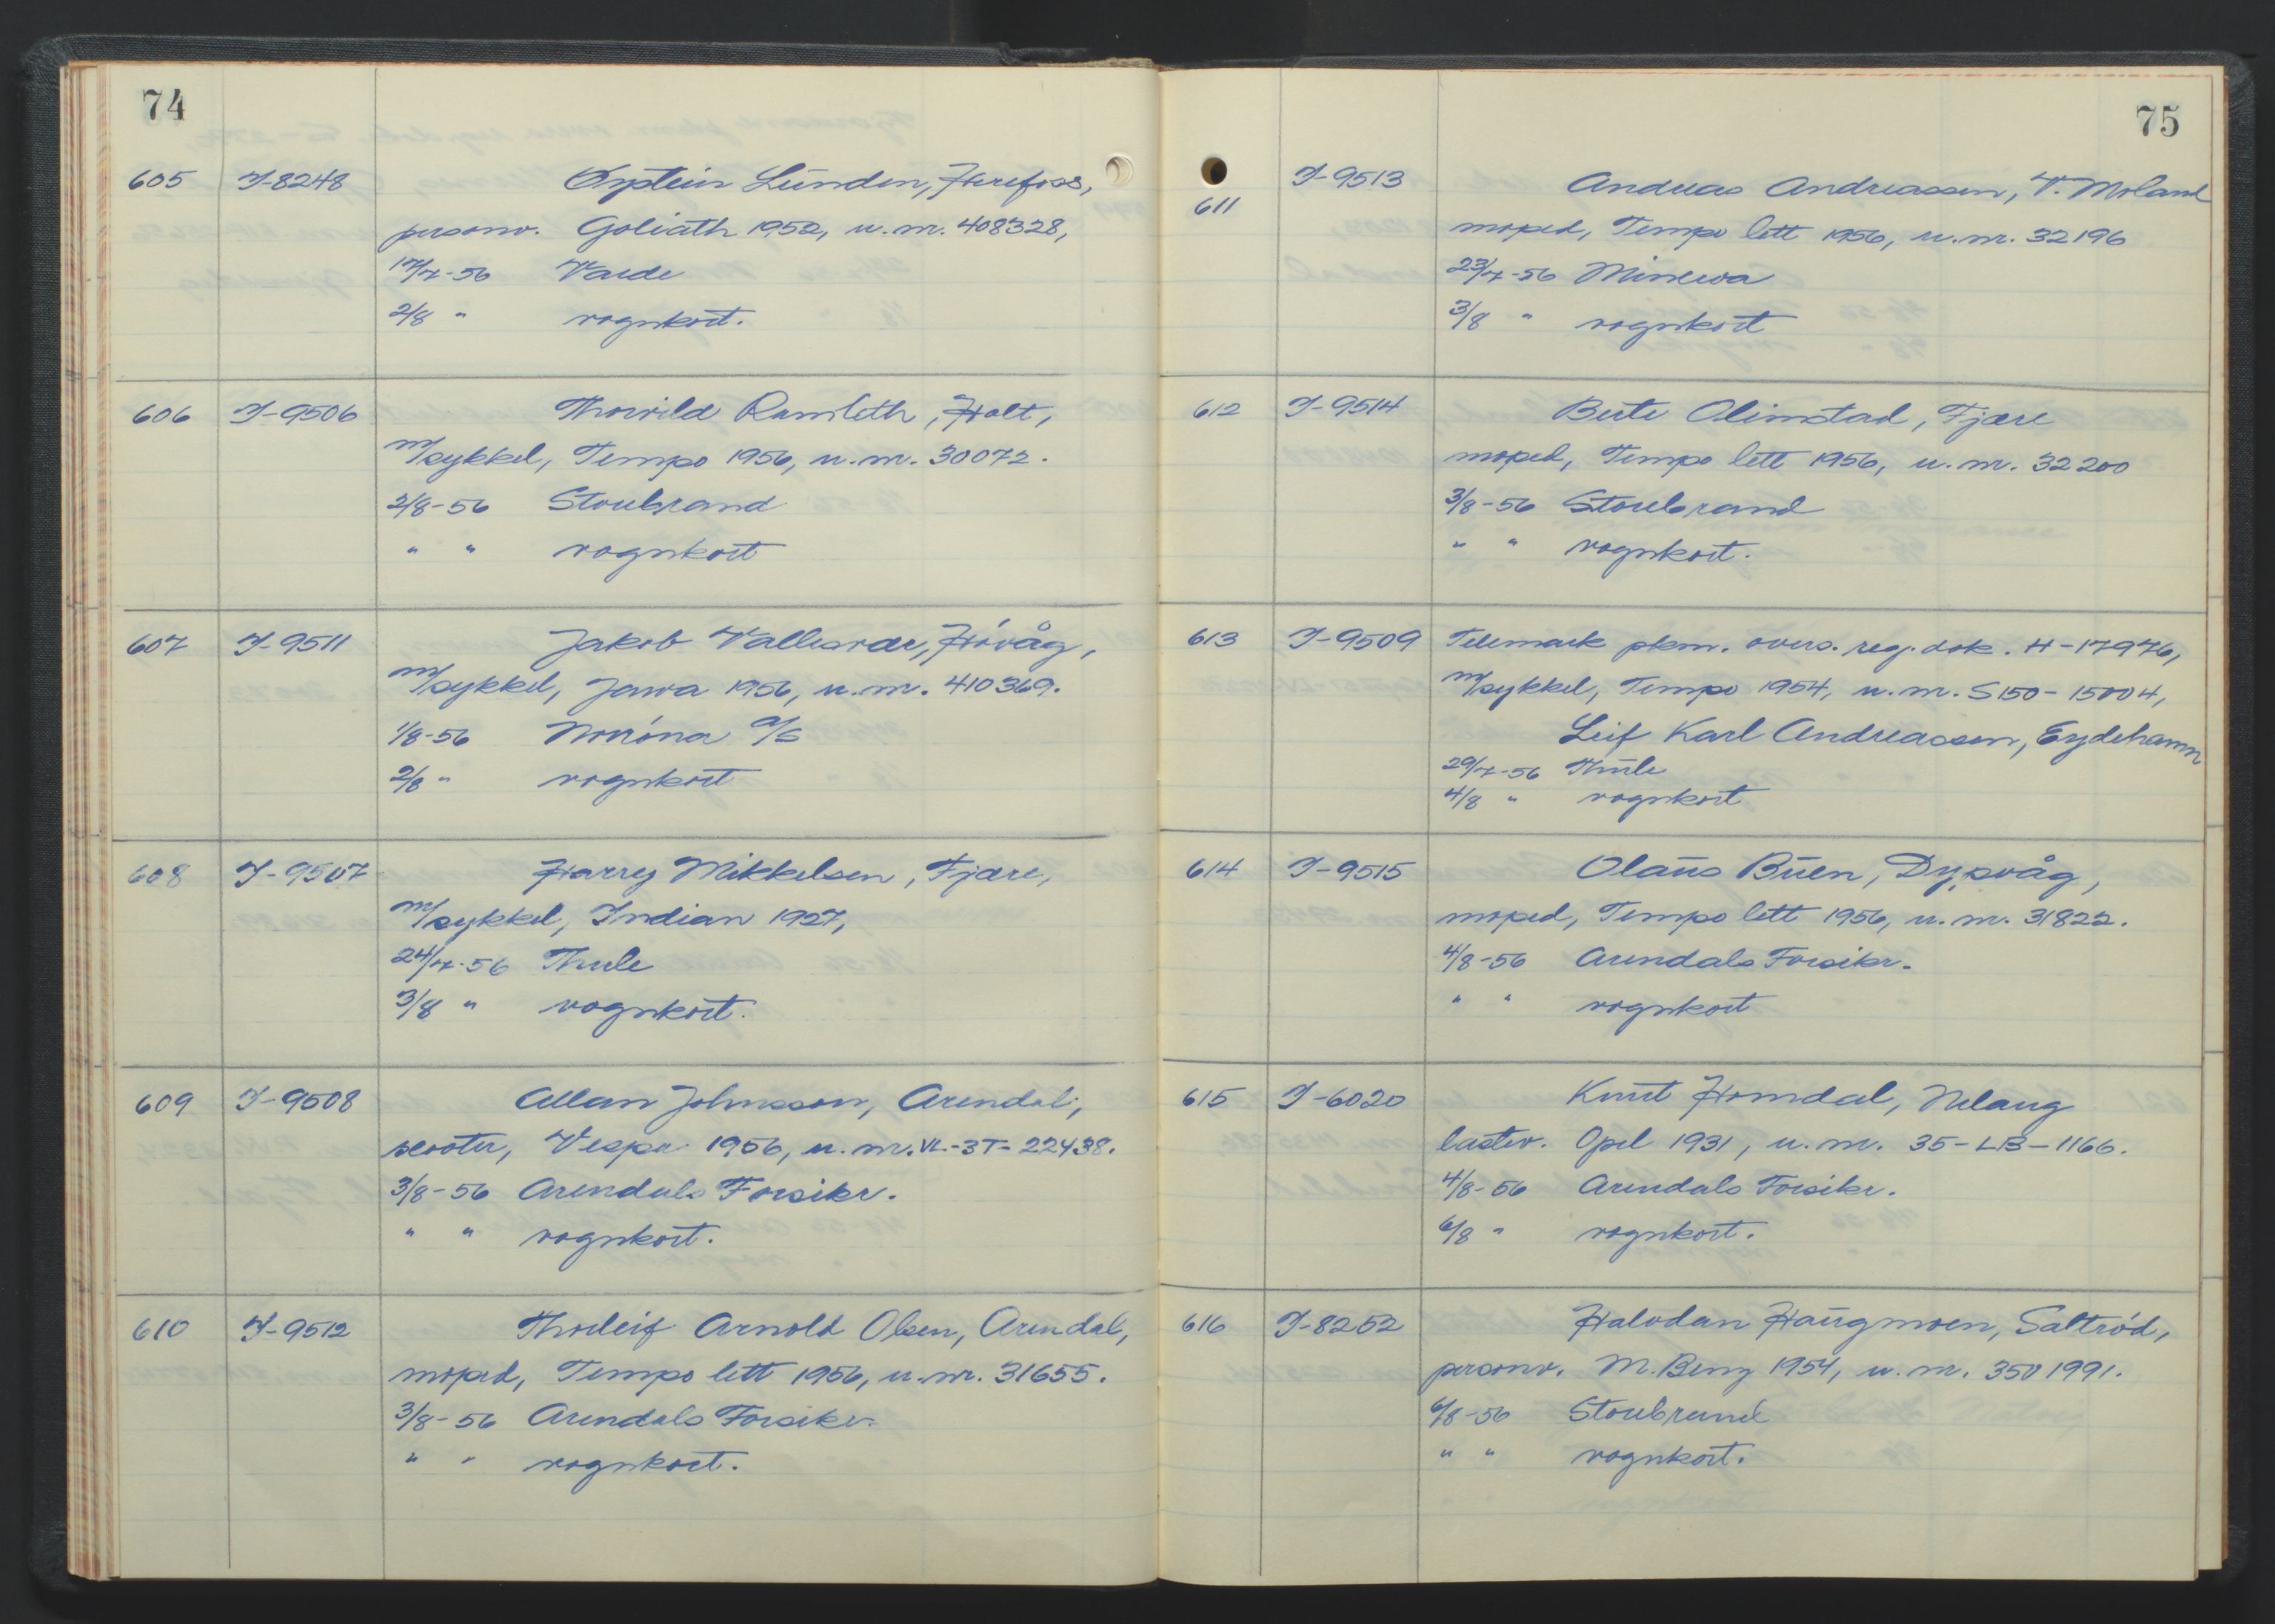 74
605 I-8248 Øystein Lunden, Herefoss,
personv. Goliath 1952, u. nr. 408328,
17/7-56 Varde
2/8 " vognkort.
606 I-9506 Thorvild Ramleth, Holt,
m/sykkel, Tempo 1956, u. nr. 30072.
2/8-56 Storebrand
" " vognkort
607 I-9511 Jakob Vallesvær, Høvåg,
m/sykkel, Jawa 1956, u. nr. 410369.
1/8-56 Norrøna A/S
2/8 " vognkort
608 I-9507 Harry Mikkelsen, Fjære,
m/sykkel, Indian 1927,
24/7-56 Thule
3/8 " vognkort.
609 I-9508 Allan Johnsson, Arendal,
scooter, Vespa 1956, u. nr. VL-3T-22438.
3/8-56 Arendals Forsikr.
" " vognkort.
610 I-9512 Thorleif Arnold Olsen, Arendal,
moped, Tempo lett 1956, u. nr. 31655.
3/8-56 Arendals Forsikr.
" " vognkort.
75
611 I-9513 Andreas Andreassen, V. Moland
moped, Tempo lett 1956, u. nr. 32196
23/7-56 Minerva
3/8 " vognkort
612 I-9514 Berte Olimstad, Fjære
moped, Tempo lett 1956, u. nr. 32200
3/8-56 Storebrand
" " vognkort.
613 I-9509 Telemark pkm. overs. reg. dok. H-17976,
m/sykkel, Tempo 1954, u. nr. S150-15004,
Leif Karl Andreassen, Eydehamn
29/7-56 Thule
4/8 " vognkort
614 I-9515 Olaus Buen, Dypvåg,
moped, Tempo lett 1956, u. nr. 31822.
4/8-56 Arendals Forsikr.
" " vognkort
615 I-6020 Knut Homdal, Nelaug
lastev. Opel 1931, u. nr. 35-LB-1166.
4/8-56 Arendals Forsikr.
6/8 " vognkort.
616 I-8252 Halvdan Haugmoen, Saltrød,
personv. M. Benz 1954, u. nr. 3501991.
6/8-56 Storebrand
" " vognkort.